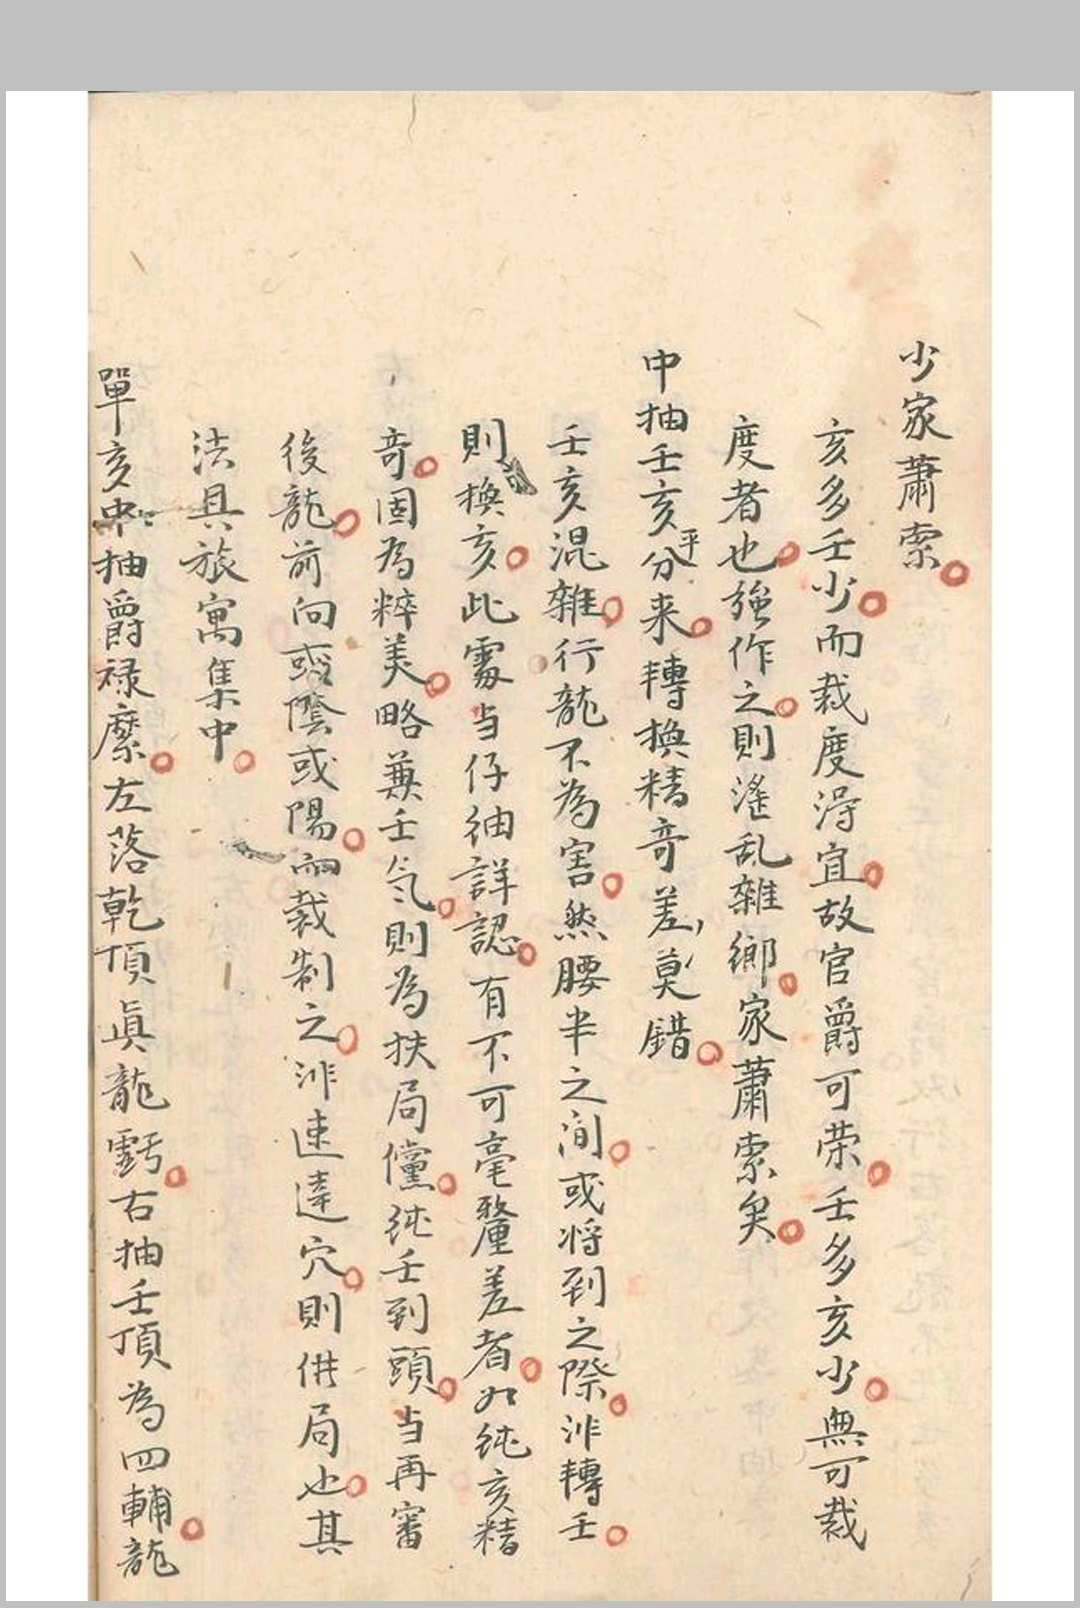 少家蕭索
亥多壬少而裁度得宜故官爵可荣壬多亥少無可裁
度者也強作之則淫乱雜鄉家蕭索矣
中抽壬亥平分来轉換精奇差莫錯
壬亥混雜行龍不為害然腰半之间或将到之際非轉壬
則換亥此處当仔細詳認有不可毫釐差者如純亥精
奇固為粹美略兼壬氣則為扶局儻純壬到頭当再審
後龍前向或陰或陽而裁制之非速達穴則供局也其
法具旅寓集中
單亥中抽爵禄縻左落乾頂眞龍虧右抽壬頂為四輔龍